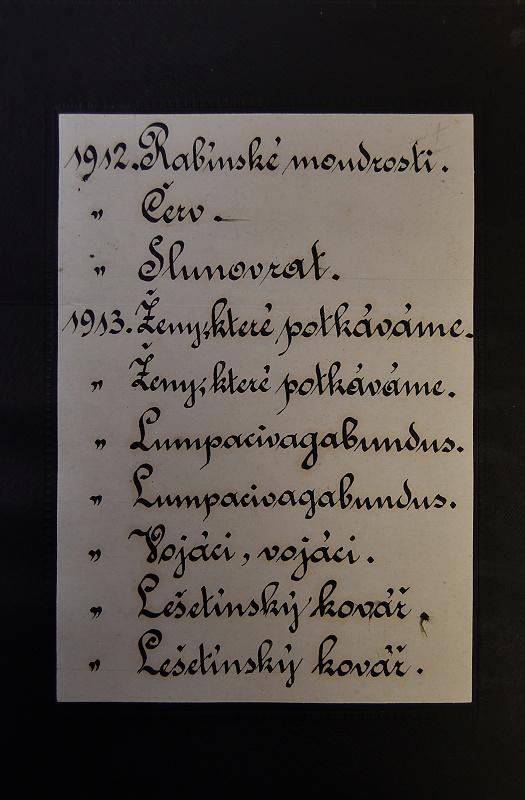 1912. Rabínské moudrosti.
„ Červ.
„ Slunovrat.
1913. Ženy, které potkáváme.
„ Ženy, které potkáváme.
„ Lumpacivagabundus.
„ Lumpacivagabundus.
„ Vojáci, vojáci.
„ Lešetínský kovář.
„ Lešetínský kovář.